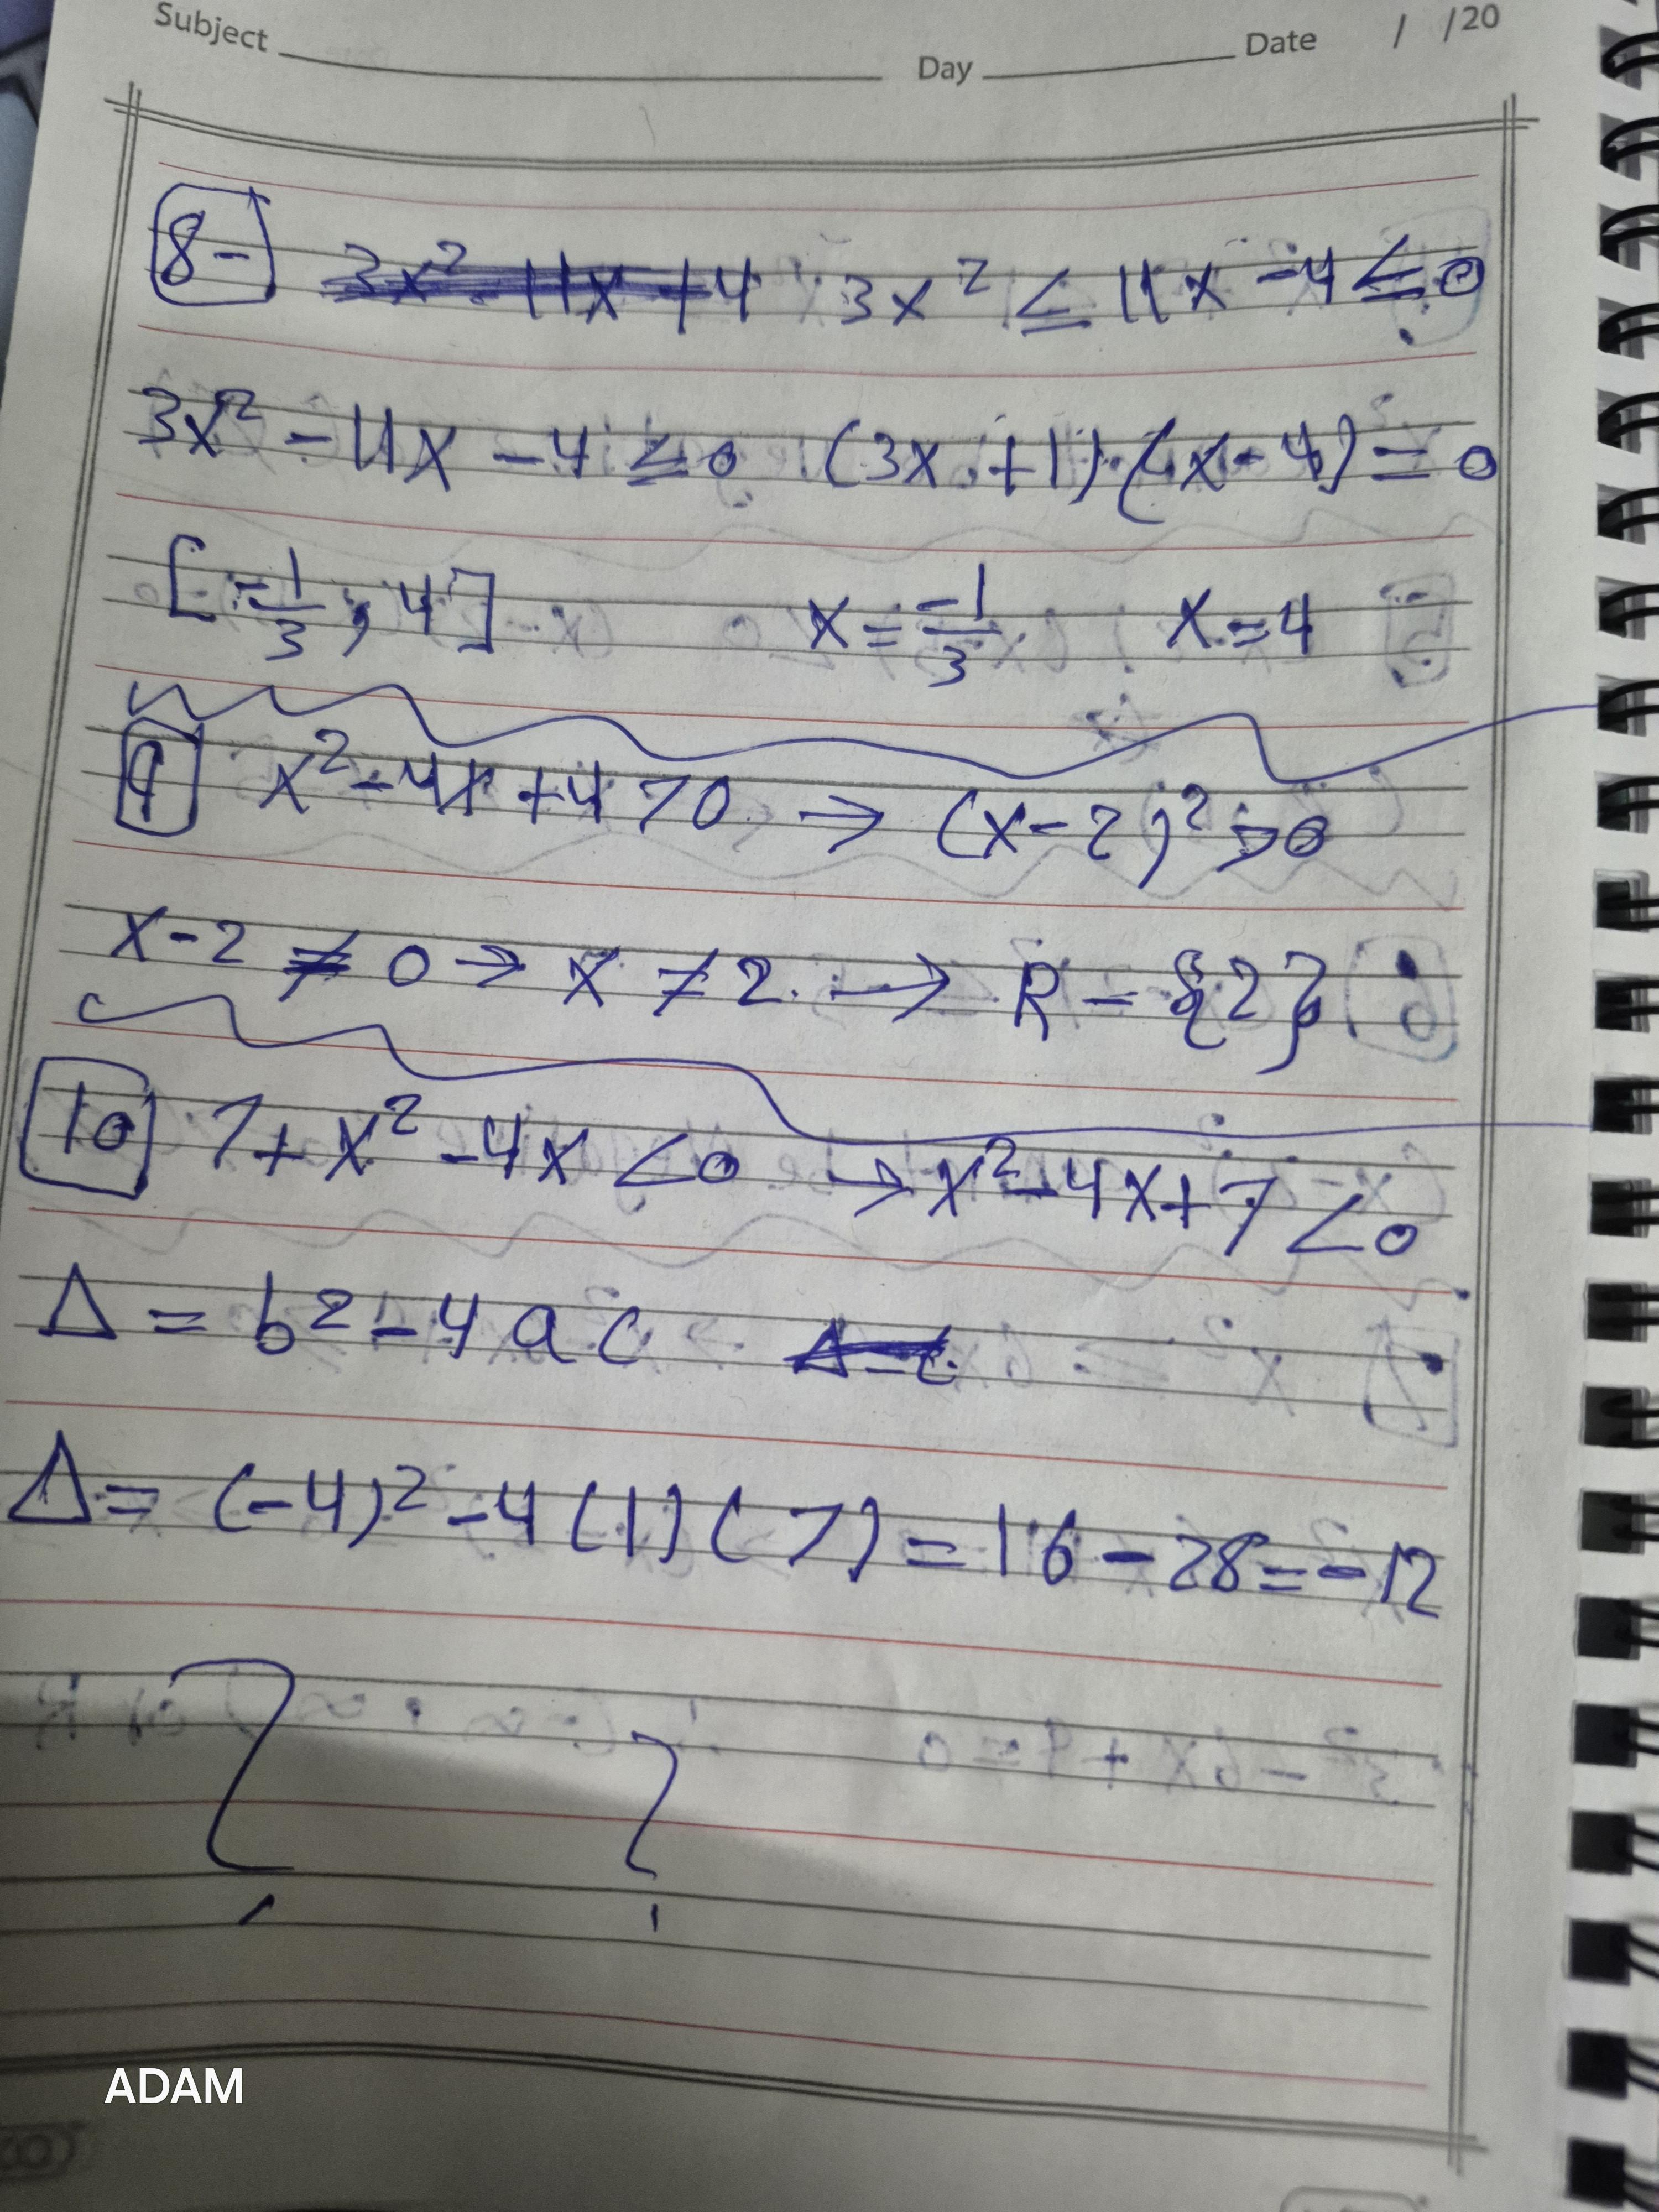 Subject Day Date / /20
8- 3x² ≤ 11x - 4 ≤ 0
3x² - 11x - 4 ≤ 0 (3x + 1) (x - 4) = 0
[-1/3 , 4] x = -1/3 x = 4
9 x² - 4x + 4 > 0 → (x - 2)² > 0
x - 2 ≠ 0 → x ≠ 2 → R - {2}
10 7 + x² - 4x < 0 → x² - 4x + 7 < 0
Δ = b² - 4ac
Δ = (-4)² - 4(1)(7) = 16 - 28 = -12
ADAM